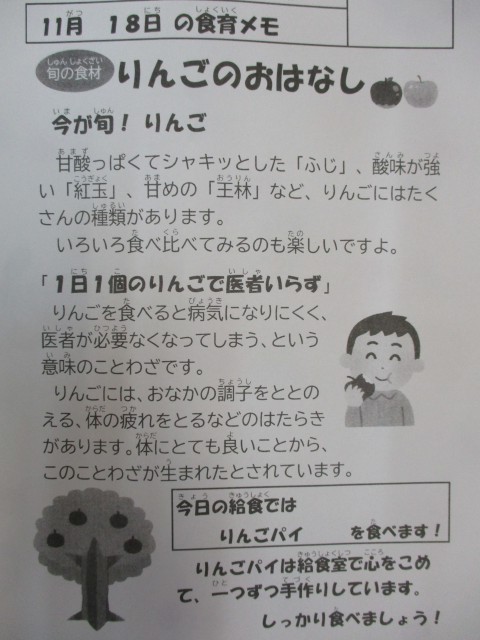 11月 18日 の食育メモ
旬の食材 りんごのおはなし
今が旬！ りんご
甘酸っぱくてシャキッとした「ふじ」、酸味が強
い「紅玉」、甘めの「王林」など、りんごにはたく
さんの種類があります。
いろいろ食べ比べてみるのも楽しいですよ。
「１日１個のりんごで医者いらず」
りんごを食べると病気になりにくく、
医者が必要なくなってしまう、という
意味のことわざです。
りんごには、おなかの調子をととの
える、体の疲れをとるなどのはたらき
があります。体にとても良いことから、
このことわざが生まれたとされています。
今日の給食では
りんごパイ を食べます！
りんごパイは給食室で心をこめ
て、一つずつ手作りしています。
しっかり食べましょう！